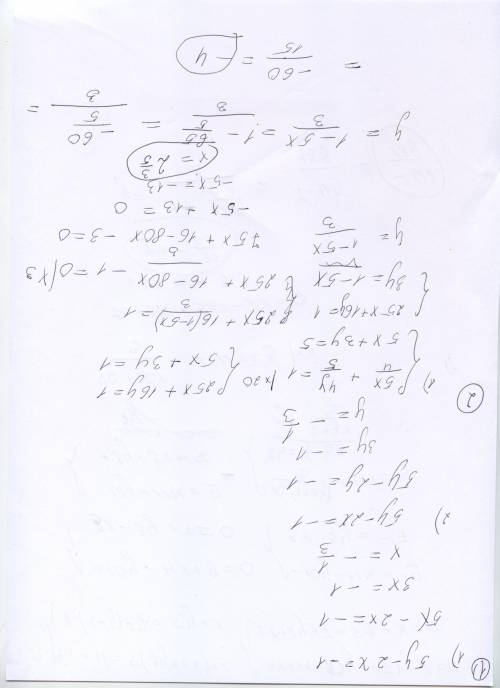 ① 1) 5y-2x=-1
5x - 2x = -1
3x = -1
x = - 1/3
2) 5y-2x=-1
5y-2y=-1
3y = -1
y = - 1/3
② 1) { 5x/4 + 4y/5 = 1 |x20 { 25x+16y=1
5x+3y=5 { 5x+3y=1
{ 25x+16y=1 { 25x + 16(1-5x)/3 = 1
3y=1-5x { 25x + 16-80x/3 - 1=0 |x3
y = 1-5x/3 75x+16-80x-3=0
-5x+13=0
-5x=-13
x = 2 3/5
y = 1-5x/3 = 1 - 65/5/3 = -60/5/3 =
= -60/15 = -4